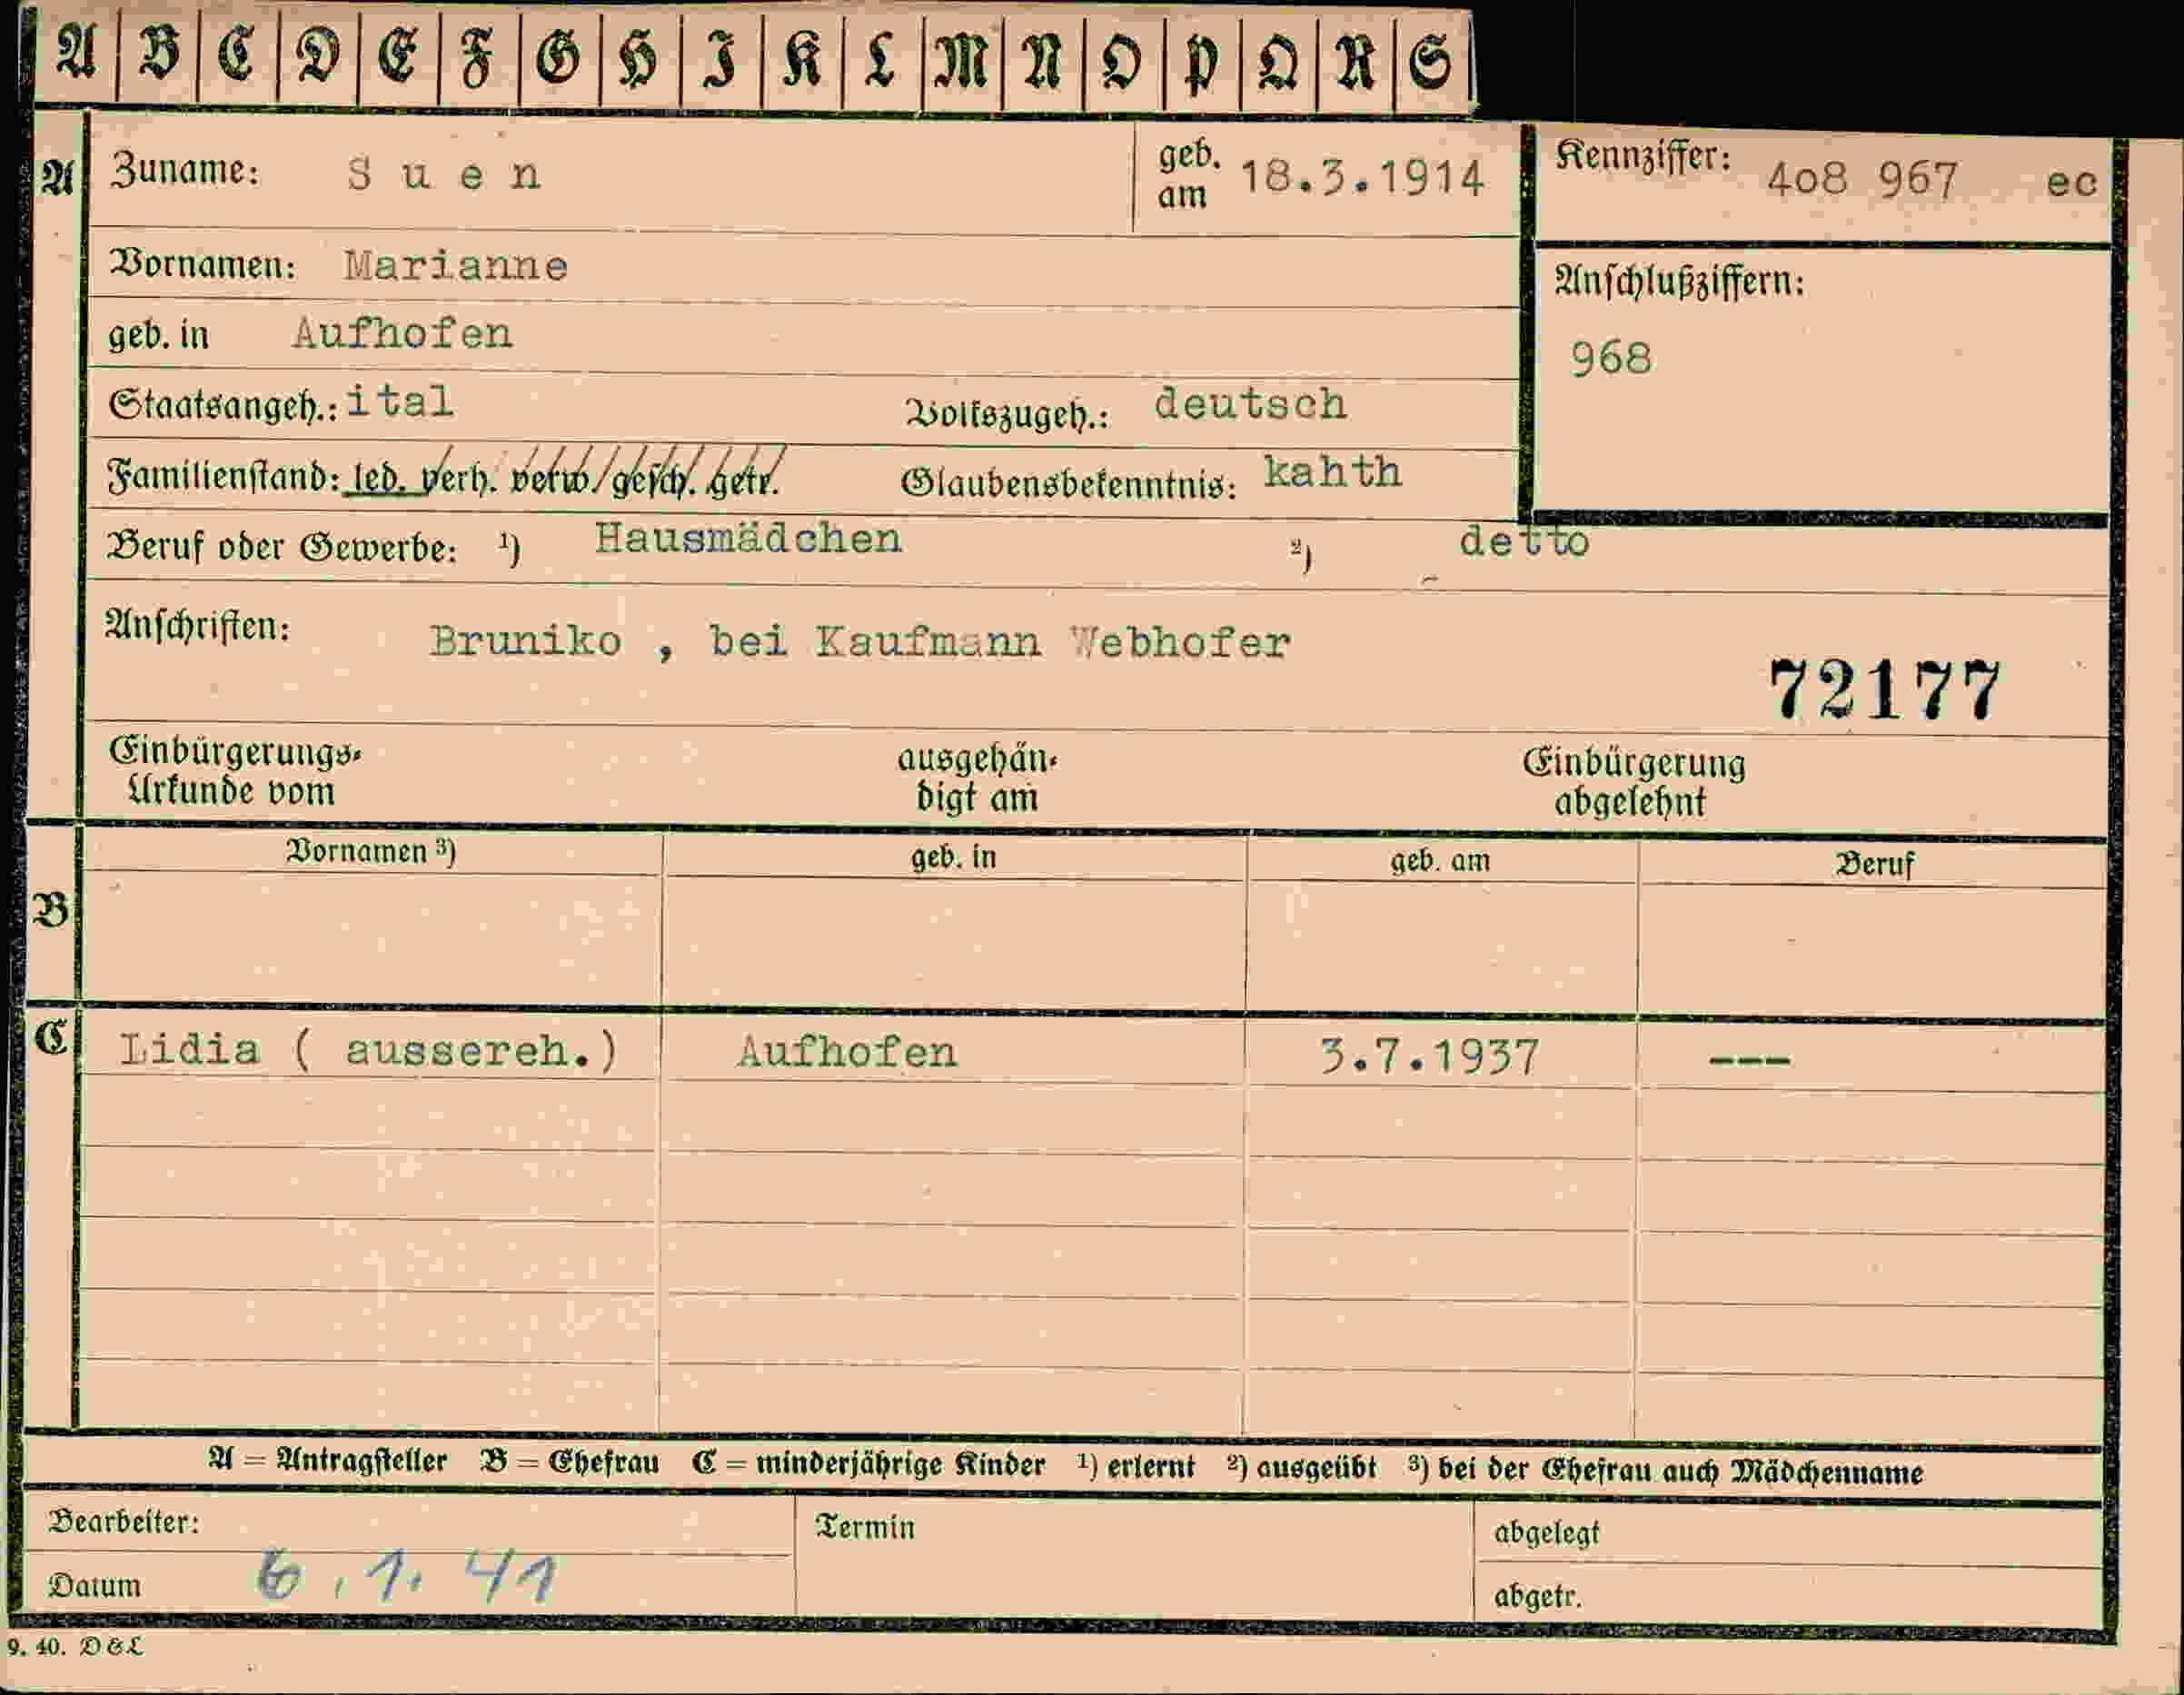 A B C D E F G H I K L M N O P Q R S
A Zuname: Suen geb. am 18.3.1914 Kennziffer: 4o8 967 ec
Vornamen: Marianne Anschlußziffern:
geb. in Aufhofen 968
Staatsangeh.: ital Volkszugeh.: deutsch
Familienstand: led. verh. verw. gesch. getr. Glaubensbekenntnis: kahth
Beruf oder Gewerbe: ¹) Hausmädchen ²) detto
Anschriften: Bruniko , bei Kaufmann Webhofer
72177
Einbürgerungs- ausgehän- Einbürgerung
Urkunde vom digt am abgelehnt
Vornamen ³) geb. in geb. am Beruf
B
C Lidia ( aussereh.) Aufhofen 3.7.1937 ---
A = Antragsteller B = Ehefrau C = minderjährige Kinder ¹) erlernt ²) ausgeübt ³) bei der Ehefrau auch Mädchenname
Bearbeiter: Termin abgelegt
Datum 6.1.41 abgetr.
9. 40. D & L